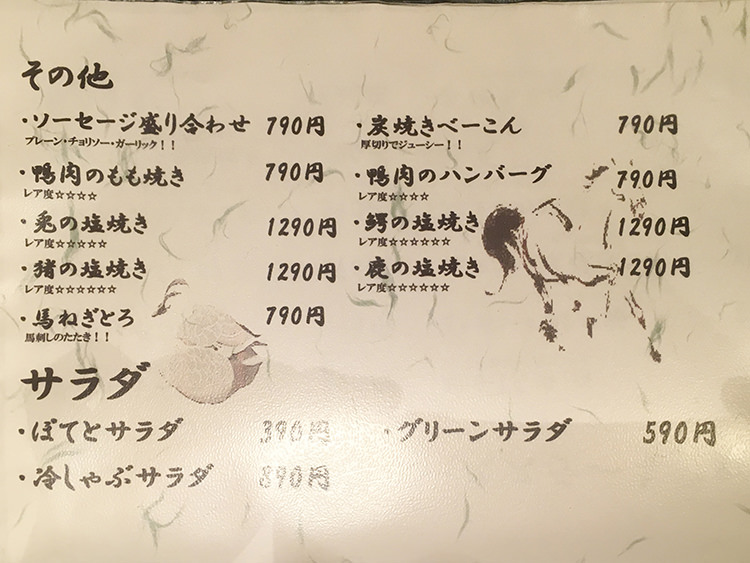 その他
・ソーセージ盛り合わせ 790円
プレーン・チョリソー・ガーリック！！
・炭焼きベーこん 790円
厚切りでジューシー！！
・鴨肉のもも焼き 790円
レア度☆☆☆☆
・鴨肉のハンバーグ 790円
レア度☆☆☆☆
・兎の塩焼き 1290円
レア度☆☆☆☆☆
・鰐の塩焼き 1290円
レア度☆☆☆☆☆☆
・猪の塩焼き 1290円
レア度☆☆☆☆☆☆
・鹿の塩焼き 1290円
レア度☆☆☆☆☆☆
・馬ねぎとろ 790円
馬刺しのたたき！！
サラダ
・ぽてとサラダ 390円
・グリーンサラダ 590円
・冷しゃぶサラダ 890円